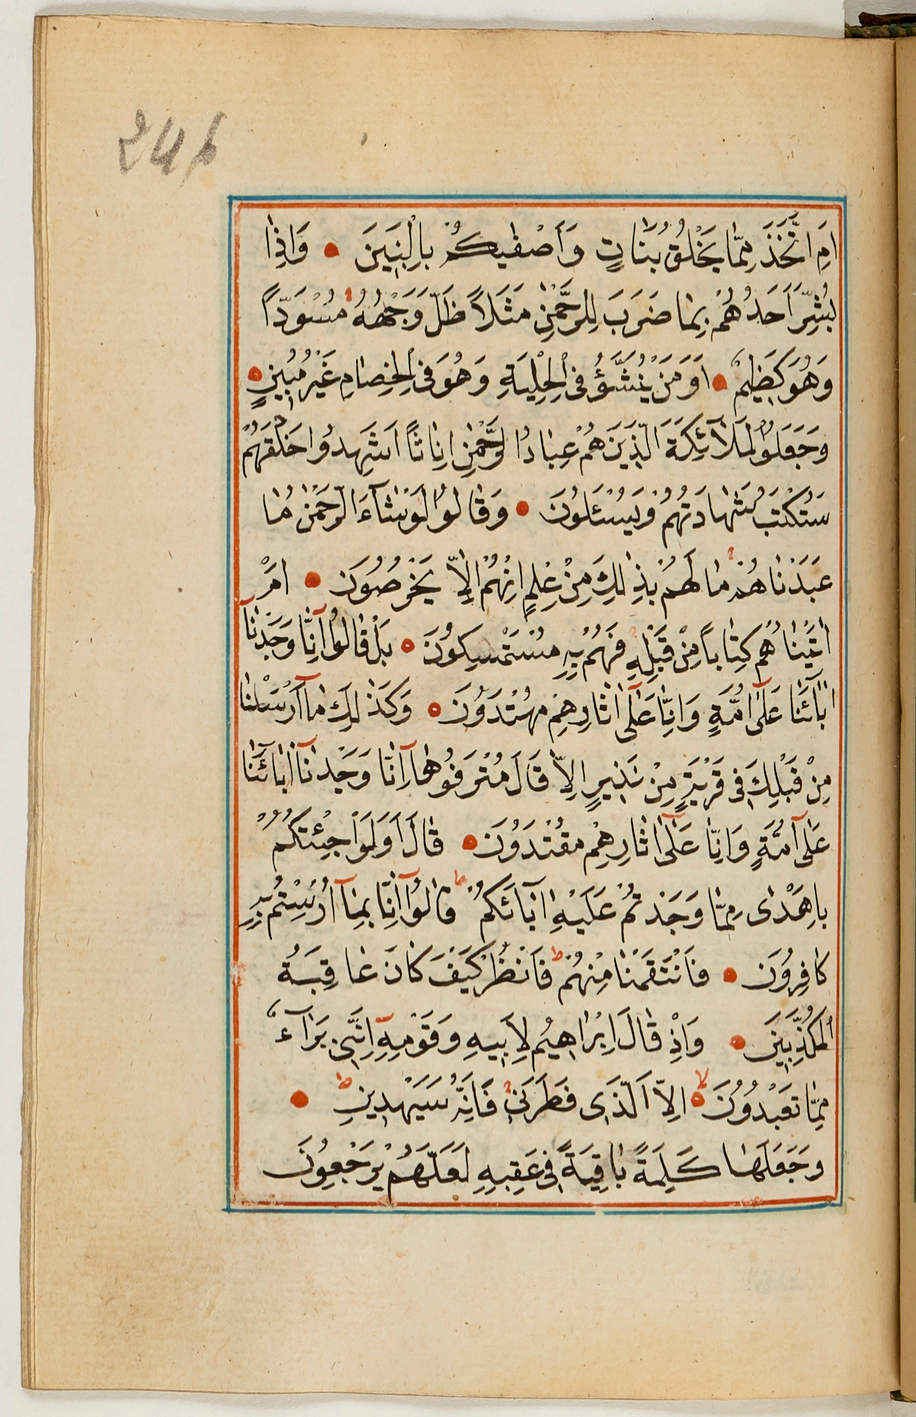 246
اَمِ اتَّخَذَ مِمَّا يَخْلُقُ بَنَاتٍ وَاَصْفٰيكُمْ بِالْبَنِينَ وَاِذَا
بُشِّرَ اَحَدُهُمْ بِمَا ضَرَبَ لِلرَّحْمٰنِ مَثَلاً ظَلَّ وَجْهُهُ مُسْوَدّاً
وَهُوَ كَظِيمٌ اَوَمَنْ يُنَشَّؤُ فِى الْحِلْيَةِ وَهُوَ فِى الْخِصَامِ غَيْرُ مُبِينٍ
وَجَعَلُوا الْمَلَآئِكَةَ الَّذِينَ هُمْ عِبَادُ الرَّحْمٰنِ اِنَاثًا اَشَهِدُوا خَلْقَهُمْ
سَتُكْتَبُ شَهَادَتُهُمْ وَيُسْئَلُونَ وَقَالُوا لَوْ شَآءَ الرَّحْمٰنُ مَا
عَبَدْنَاهُمْ مَا لَهُمْ بِذٰلِكَ مِنْ عِلْمٍ اِنْ هُمْ اِلَّا يَخْرُصُونَ اَمْ
اٰتَيْنَاهُمْ كِتَاباً مِنْ قَبْلِهِ فَهُمْ بِهِ مُسْتَمْسِكُونَ بَلْ قَالُوا اِنَّا وَجَدْنَآ
اٰبَآئَنَا عَلٰى اُمَّةٍ وَاِنَّا عَلٰى اٰثَارِهِمْ مُهْتَدُونَ وَكَذٰلِكَ مَآ اَرْسَلْنَا
مِنْ قَبْلِكَ فِى قَرْيَةٍ مِنْ نَذِيرٍ اِلاَّ قَالَ مُتْرَفُوهَا اِنَّا وَجَدْنَآ اٰبَآئَنَا
عَلٰى اُمَّةٍ وَاِنَّا عَلٰى اٰثَارِهِمْ مُقْتَدُونَ قَالَ اَوَلَوْ جِئْتُكُمْ
بِاَهْدٰى مِمَّا وَجَدْتُمْ عَلَيْهِ اٰبَآئَكُمْ قَالُوا اِنَّا بِمَآ اُرْسِلْتُمْ بِهِ
كَافِرُونَ فَانْتَقَمْنَا مِنْهُمْ فَانْظُرْ كَيْفَ كَانَ عَاقِبَةُ
الْمُكَذِّبِينَ وَاِذْ قَالَ اِبْرَاهِيمُ لِاَبِيهِ وَقَوْمِهِ اِنَّنِى بَرَآءٌ
مِمَّا تَعْبُدُونَ اِلَّا الَّذِى فَطَرَنِى فَاِنَّهُ سَيَهْدِينِ
وَجَعَلَهَا كَلِمَةً بَاقِيَةً فِى عَقِبِهِ لَعَلَّهُمْ يَرْجِعُونَ